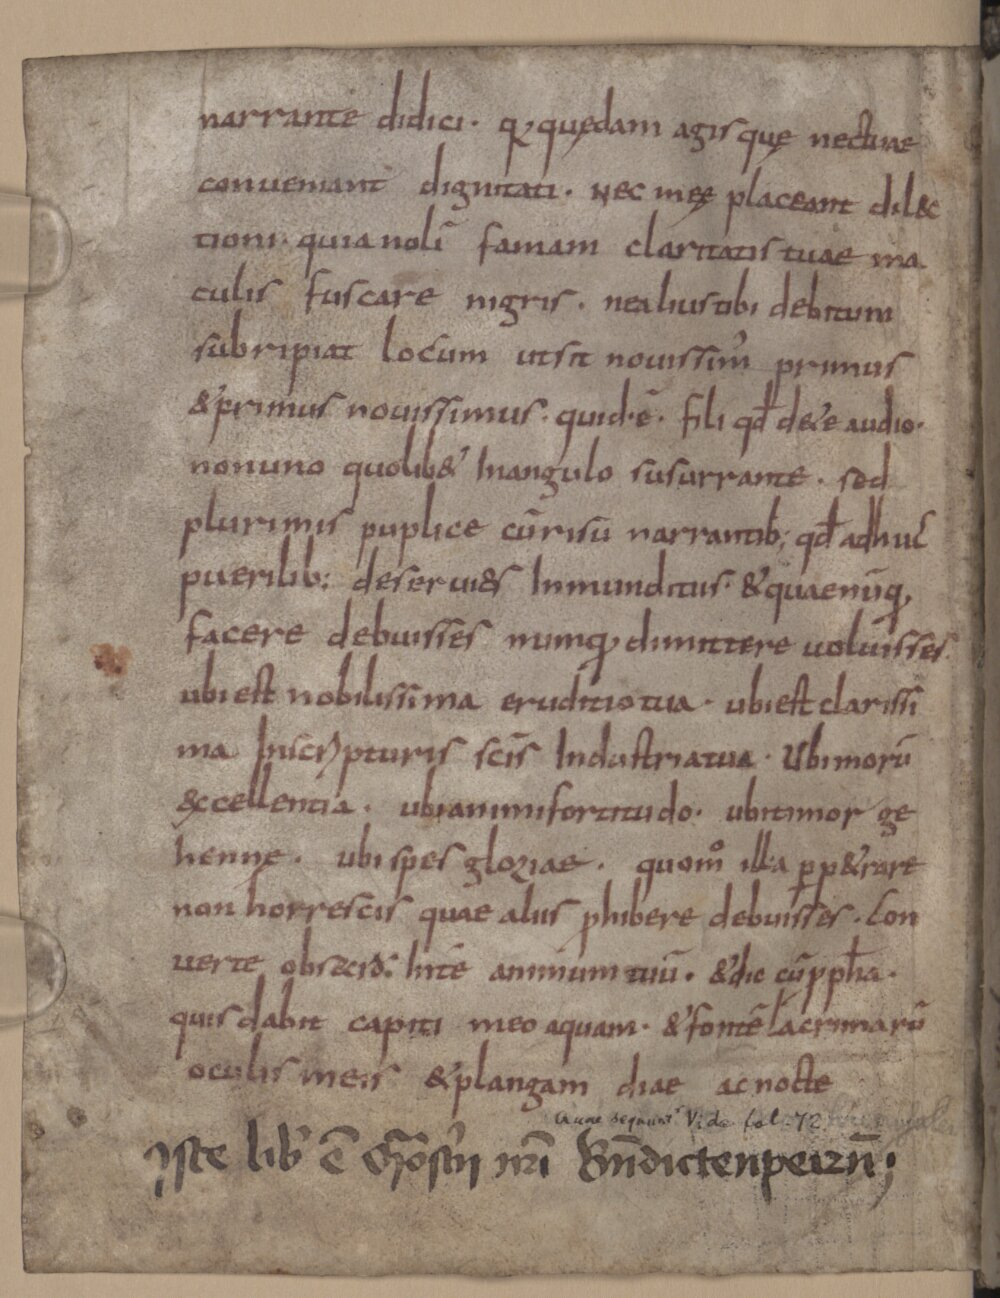 narrante didici · q̄ quędam agis quę nec tuae
conveniant dignitati · Nec męę placeant dil&c
tioni · quia nolī famam claritatis tuae ma
culis fuscare nigris · ne alius tibi debitum
subripiat locum ut sit novissim̄ primus
& primus novissimus · quid · ē · fili qđ de te audio ·
non uno quolib& In angulo susurrante · sed
plurimis puplice cū risu narrantib; qđ adhuc
puerilib; deservies Inmunditiis · & quae nūq̄
facere debuisses numq̄ dimittere voluisses ·
ubi est nobilissima eruditio tua · ubi est clarissi
ma In scripturis scis̄ Industria tua · Ubi morū
&ccellentia · ubi animi fortitudo · ubi timor ge
hennę · ubi spes gloriae · quom̊ illa p̱p&rare
non horrescis quae aliis p̱hibere debuisses · Con
verte obsecro hinc animum tuū · & dic cū pph̄a ·
quis dabit capiti meo aquam · & fontē lacrimarū
oculis meis & plangam diae ac nocte
Vide fol 72
Iste lib' ē